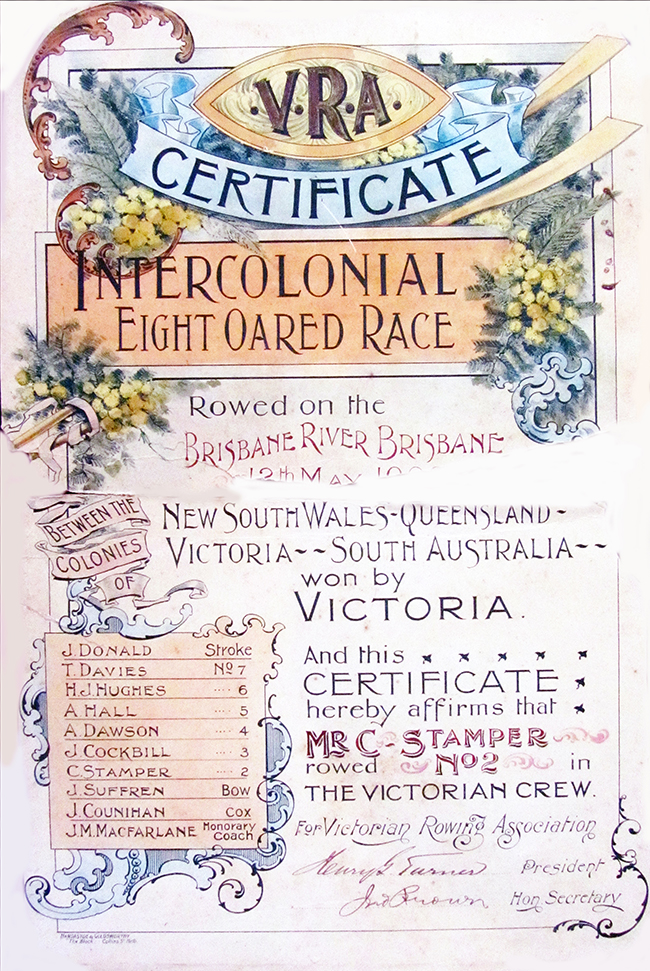 V.R.A.
CERTIFICATE
INTERCOLONIAL
EIGHT OARED RACE
Rowed on the
BRISBANE RIVER BRISBANE
12th MAY
BETWEEN THE
COLONIES
OF
NEW SOUTH WALES-QUEENSLAND-
VICTORIA--SOUTH AUSTRALIA--
won by
VICTORIA.
J. DONALD Stroke
T. DAVIES No 7
H.J. HUGHES .... 6
A HALL .... 5
A. DAWSON .... 4
J. COCKBILL .... 3
C. STAMPER .... 2
J. SUFFREN Bow
J. COUNIHAN Cox
J.M. MACFARLANE Honorary Coach
And this
CERTIFICATE
hereby affirms that
MR C-STAMPER
rowed No2 in
THE VICTORIAN CREW.
For Victorian Rowing Association
Henry G. Turner President
Jno Brown Hon Secretary
The Block Collins St